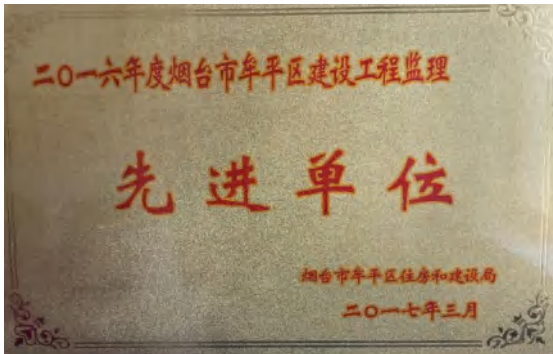 二〇一六年度烟台市牟平区建设工程监理
先进单位
烟台市牟平区住房和建设局
二〇一七年三月